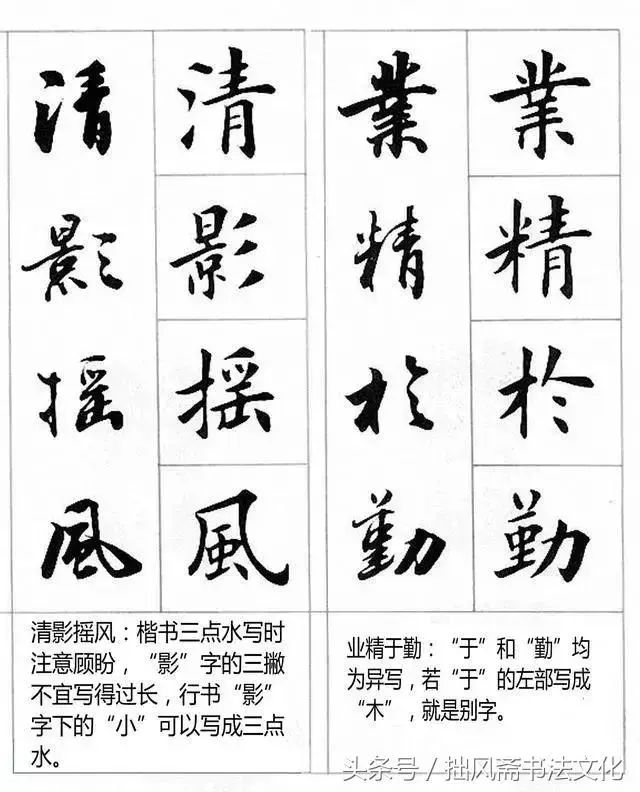 業 業
精 精
於 於
勤 勤
清 清
影 影
摇 摇
風 風
清影摇风：楷书三点水写时
注意顾盼，“影”字的三撇
不宜写得过长，行书“影”
字下的“小”可以写成三点
水。
业精于勤：“于”和“勤”均
为异写，若“于”的左部写成
“木”，就是别字。
头条号／拙风斋书法文化